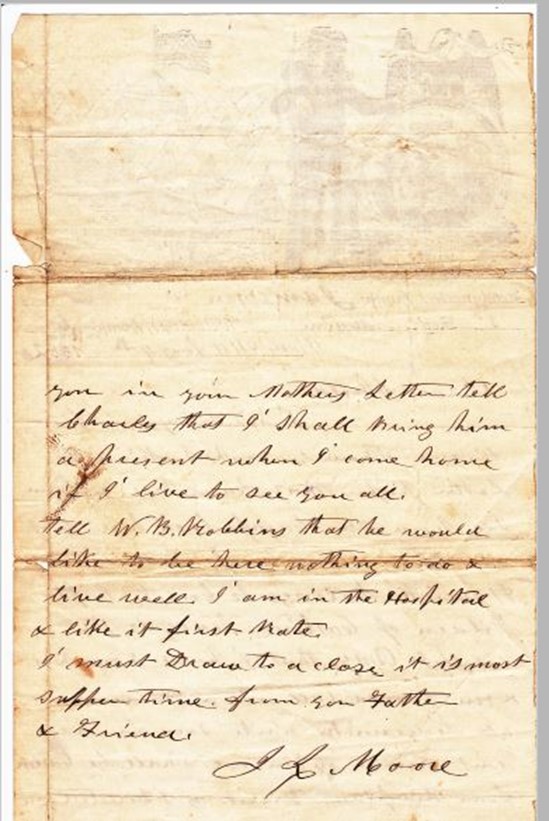 you in your Mothers Letter tell
Charles that I shall Bring him
a present when I come home
if I live to see you all.
tell W. B. Robbins that he would
like to be here nothing to do &
live well. I am in the Hospital
& like it first Rate.
I must Draw to a close it is most
supper time. from you Father
& Friend.
J L Moore